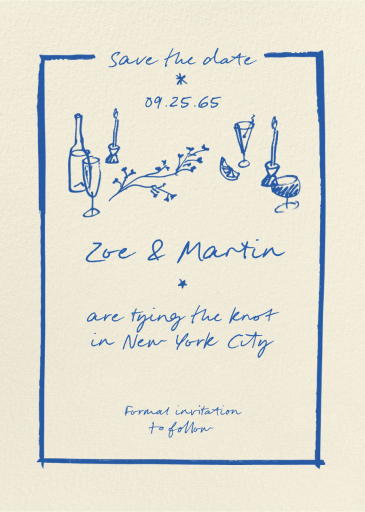 Save the date
09.25.65
Zoe & Martin
are tying the knot
in New York City
Formal invitation
to follow